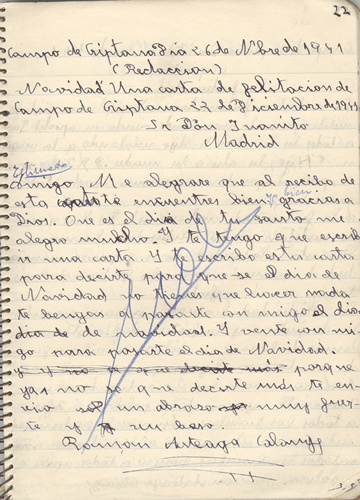 22
Campo de Criptana Dia 26 de Nbre de 1941
(Redaccion)
Navidad Una carta de felitacion de
Campo de Criptana 22 de Diciembre de 1941
Sr Don Juanito
Madrid
Estimado
Amigo Me alegrare que al recibo de
esta carta te encuentres bien y bien gracias a
Dios. Que es el dia de tu santo me
alegro mucho. Y te tengo que escrib
ir una carta. Y escribo esta carta
para decirte para que se el dia de
Navidad no tienes que hacer nada
te bengas a pasarte con migo el dia
dia de de navidad. Y vente con mi
go para pasarte el dia de Navidad.
y y no a que decirte más porque
yas no se que decirte más te en
vio un abrazo muy fuer
te y un beso.
Román Arteaga Calonge